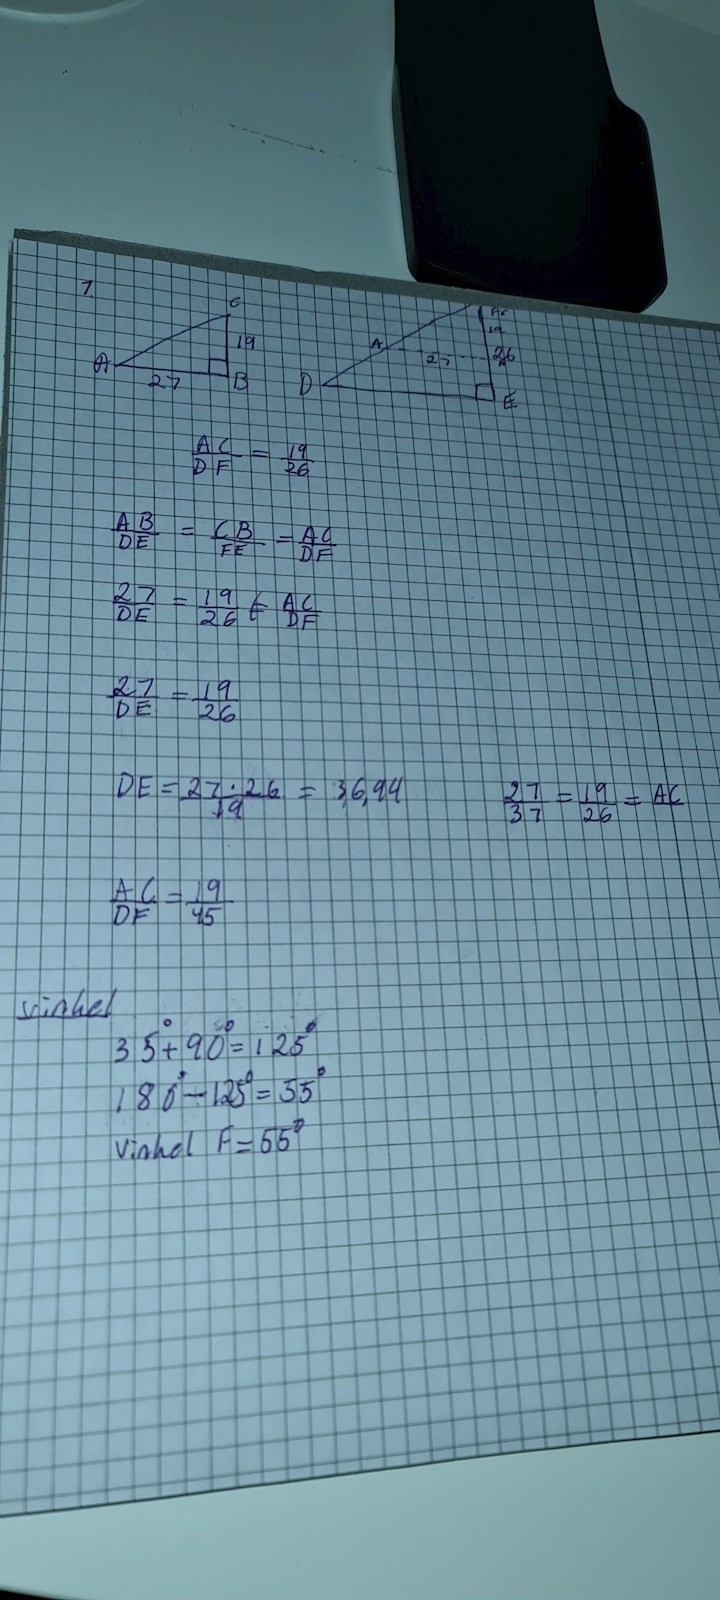 1.
C
19
A
27
B
A
19
27
26
D
E
AC/DF = 19/26
AB/DE = CB/FE = AC/DF
27/DE = 19/26 = AC/DF
27/DE = 19/26
DE = 27·26/19 = 36,94
27/37 = 19/26 = AC
AC/DF = 19/45
Vinkel
35° + 90° = 125°
180° - 125° = 55°
Vinkel F = 55°